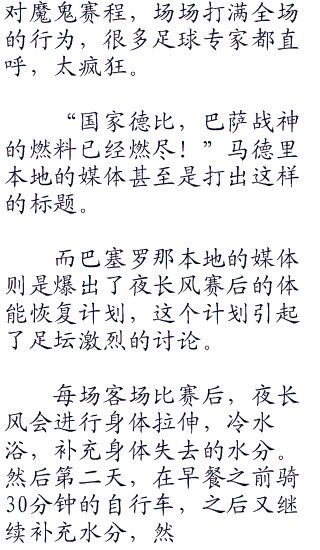 对魔鬼赛程，场场打满全场
的行为，很多足球专家都直
呼，太疯狂。
“国家德比，巴萨战神
的燃料已经燃尽！”马德里
本地的媒体甚至是打出这样
的标题。
而巴塞罗那本地的媒体
则是爆出了夜长风赛后的体
能恢复计划，这个计划引起
了足坛激烈的讨论。
每场客场比赛后，夜长
风会进行身体拉伸，冷水
浴，补充身体失去的水分。
然后第二天，在早餐之前骑
30分钟的自行车，之后又继
续补充水分，然